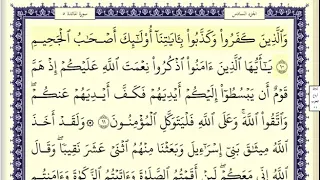 الجزء السادس سورة المائدة ٥
وَالَّذِينَ كَفَرُوا۟ وَكَذَّبُوا۟ بِـَٔايَـٰتِنَآ أُو۟لَـٰٓئِكَ أَصْحَـٰبُ الْجَحِيمِ
١٠ يَـٰٓأَيُّهَا الَّذِينَ ءَامَنُوا۟ اذْكُرُوا۟ نِعْمَتَ اللَّهِ عَلَيْكُمْ إِذْ هَمَّ
قَوْمٌ أَن يَبْسُطُوٓا۟ إِلَيْكُمْ أَيْدِيَهُمْ فَكَفَّ أَيْدِيَهُمْ عَنكُمْ ۖ
وَاتَّقُوا۟ اللَّهَ ۚ وَعَلَى اللَّهِ فَلْيَتَوَكَّلِ الْمُؤْمِنُونَ ١١ ۞ وَلَقَدْ أَخَذَ
اللَّهُ مِيثَـٰقَ بَنِىٓ إِسْرَٰٓءِيلَ وَبَعَثْنَا مِنْهُمُ اثْنَىْ عَشَرَ نَقِيبًا ۖ وَقَالَ
اللَّهُ إِنِّى مَعَكُمْ ۖ لَئِنْ أَقَمْتُمُ الصَّلَوٰةَ وَءَاتَيْتُمُ الزَّكَوٰةَ وَءَامَنتُم